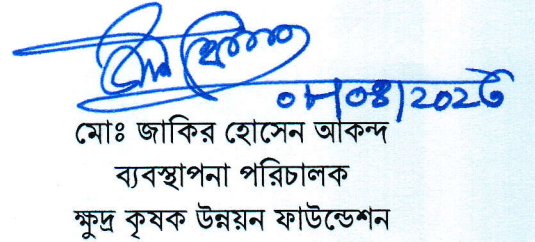 মোঃ জাকির হোসেন আকন্দ
ব্যবস্থাপনা পরিচালক
ক্ষুদ্র কৃষক উন্নয়ন ফাউন্ডেশন